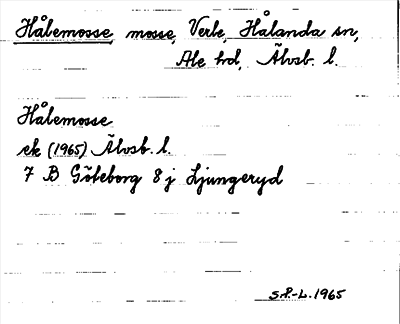 Hålemosse mosse, Verle, Hålanda sn,
Ale hd, Älvsb. l.
Hålemosse
ek (1965) Älvsb. l.
7 B Göteborg 8 j Ljungeryd
S.P.-L. 1965